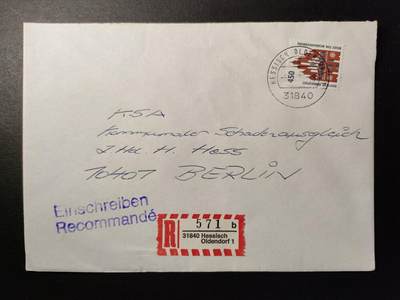 HESSISCH OLDE
450
31840
KSA
Kommunaler Schadenausgleich
z Hd. H. Hess
10407 BERLIN
Einschreiben
Recommandé
R
571 b
31840 Hessisch
Oldendorf 1